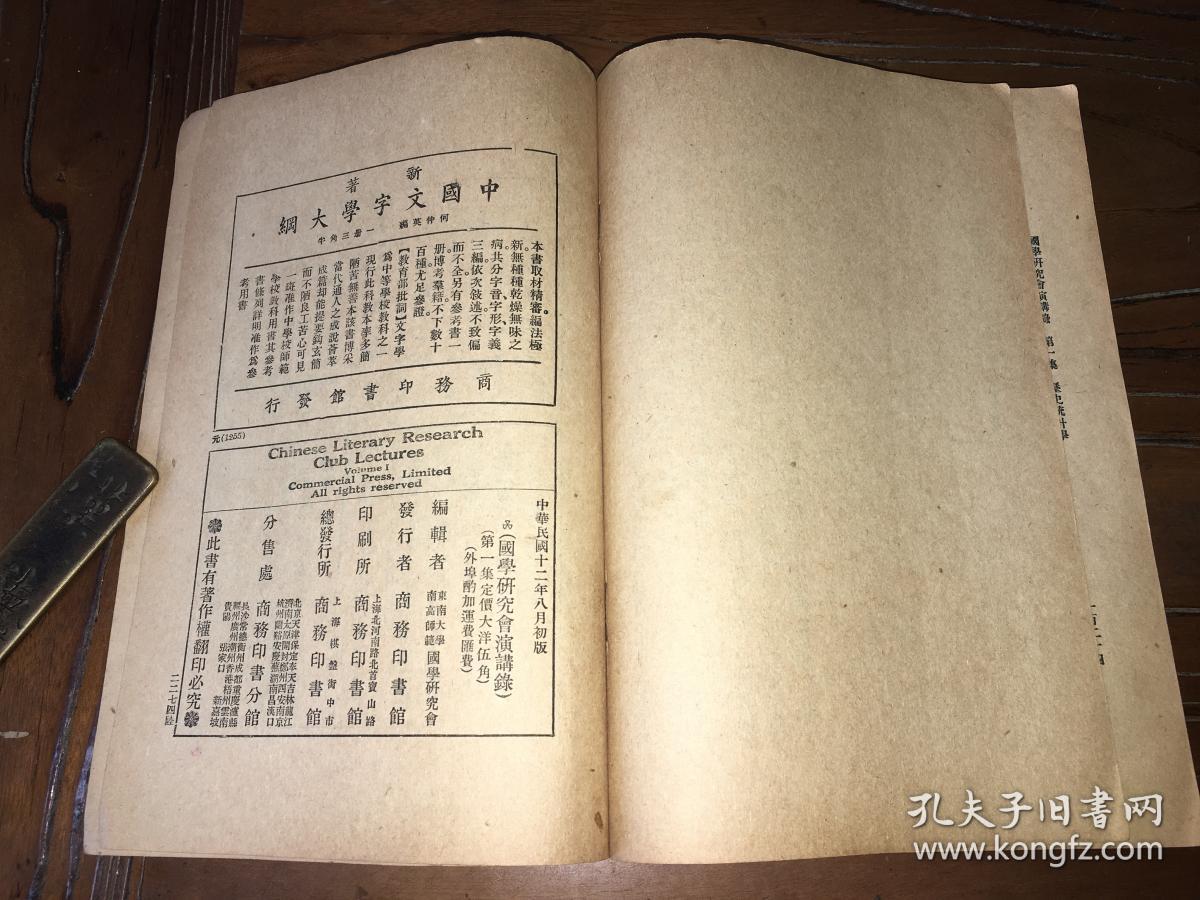 新著
中國文字學大綱
何仲英編 一册三角半
本書取材精審。編法極
新。無種種乾燥無味之
病。共分字音字形字義
三編。依次敍述。不致偏
而不全。另有參考書一
册。博考羣籍。不下數十
百種。尤足參證。
【教育部批詞】文字學
爲中等學校教科之一
現行此科教本率多簡
陋苦無善本該書博采
當代通人之成說薈萃
成篇却能提要鈎玄簡
而不陋良工苦心可見
一斑准作中學校師範
學校教科用書其參考
書條列詳明准作爲參
考用書
商務印書館發行
元(1255)
Chinese Literary Research
Club Lectures
Volume I
Commercial Press, Limited
All rights reserved
中華民國十二年八月初版
(國學研究會演講錄)
(第一集定價大洋伍角)
(外埠酌加運費匯費)
編輯者 東南大學南高師範國學研究會
發行者 商務印書館
印刷所 上海北河南路北首寶山路 商務印書館
總發行所 上海棋盤街中市 商務印書館
分售處 商務印書分館
北京天津保定奉天吉林龍江
濟南太原開封鄭州西安南京
杭州蘭谿安慶蕪湖南昌漢口
長沙常德衡州成都重慶瀘縣
福州廣州潮州香港梧州雲南
貴陽 張家口 新嘉坡
此書有著作權翻印必究
二二七四陸
國學研究會演講錄 第一集 歷史統計學
孔夫子旧书网
www.kongfz.com